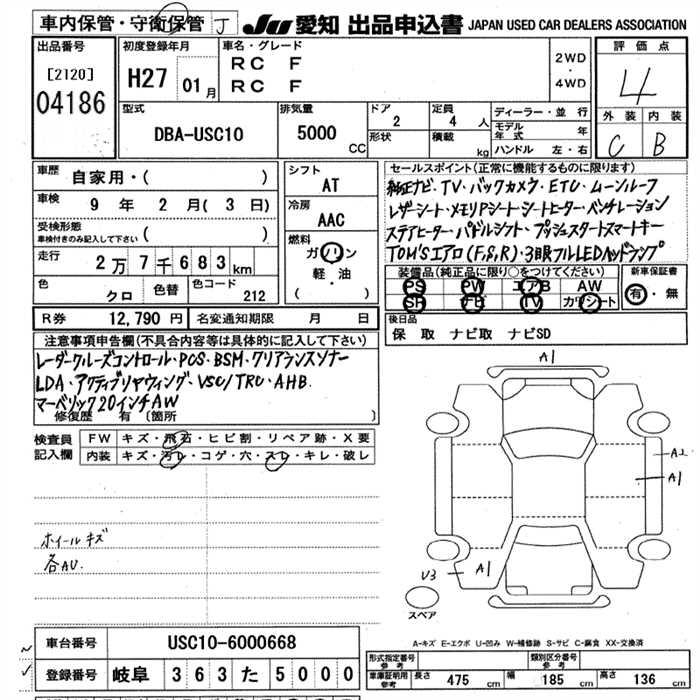 車内保管・守衛保管 J
JU 愛知 出品申込書 JAPAN USED CAR DEALERS ASSOCIATION
出品番号
[2120]
04186
初度登録年月
H27 01 月
車名・グレード
RC F
RC F
2WD
・
4WD
評価点
4
外装 内装
C B
型式
DBA-USC10
排気量
5000 CC
ドア
2
形状
定員
4 人
積載
kg
ディーラー・並行
モデル年式 年
ハンドル 左・右
車歴
自家用・( )
車検
9 年 2 月( 3 日)
受検形態
車検付きのみ記入して下さい ( )
走行
2万7千683km
色
クロ
色替
色コード
212
シフト
AT
冷房
AAC
燃料
ガソリン
軽・油
( )
セールスポイント(正常に機能するものに限ります)
純正ナビ・TV・バックカメラ・ETC・ムーンルーフ
レザーシート・メモリPシート・シートヒーター・ベンチレーション
ステアヒーター・パドルシフト・プッシュスタートスマートキー
TOM'Sエアロ(F,S,R)・3眼フルLEDヘッドランプ
装備品(純正品に限り○をつけてください)
PS PW エアB AW
SR ナビ TV カワシート
新車保証書
有・無
R券 12,790 円 名変通知期限 月 日
後日品
保 取 ナビ取 ナビSD
注意事項申告欄(不具合内容等は具体的に記入して下さい)
レーダークルーズコントロール・PCS・BSM・クリアランスソナー
LDA・アクティブリヤウィング・VSC/TRC・AHB
マーベリック20インチAW
修復歴 有 〔箇所 〕
検査員記入欄
FW キズ・飛石・ヒビ割・リペア跡・X要
内装 キズ・汚レ・コゲ・穴・スレ・キレ・破レ
ホイールキズ
各AU.
A1
A2
A1
U3 A1
スペア
A-キズ E-エクボ U-凹み W-補修跡 S-サビ C-腐食 XX-交換済
車台番号 USC10-6000668
登録番号 岐阜 363 た 5000
形式指定番号 参考
類別区分番号 参考
車庫証明用 参考 長さ 475 cm 幅 185 cm 高さ 136 cm